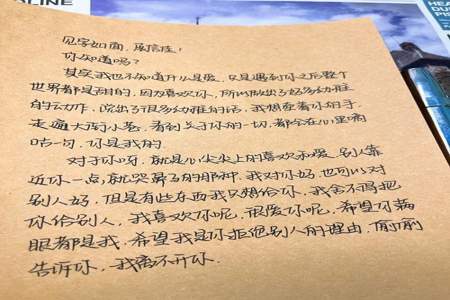 LINE
HEA
DU
PIS
见字如面，展信佳！
你知道吗？
其实我也不知道什么是爱，只是遇到你之后整个
世界都是甜的，因为喜欢你，所以做出了好多幼稚
的动作，说出了很多幼稚的话，我想牵着你的手，
走遍大街小巷，看到关于你的一切，都会在心里嘀
咕一句，你是我的。
对于你呀，就是心尖尖上的喜欢和爱，别人靠
近你一点，就哭鼻子的那种，我对你好，也可以对
别人好，但是有些东西我只想给你，我舍不得把
你给别人，我喜欢你呢，很爱你呢，希望你满
眼都是我，希望我是你拒绝别人的理由，偷偷
告诉你，我离不开你．